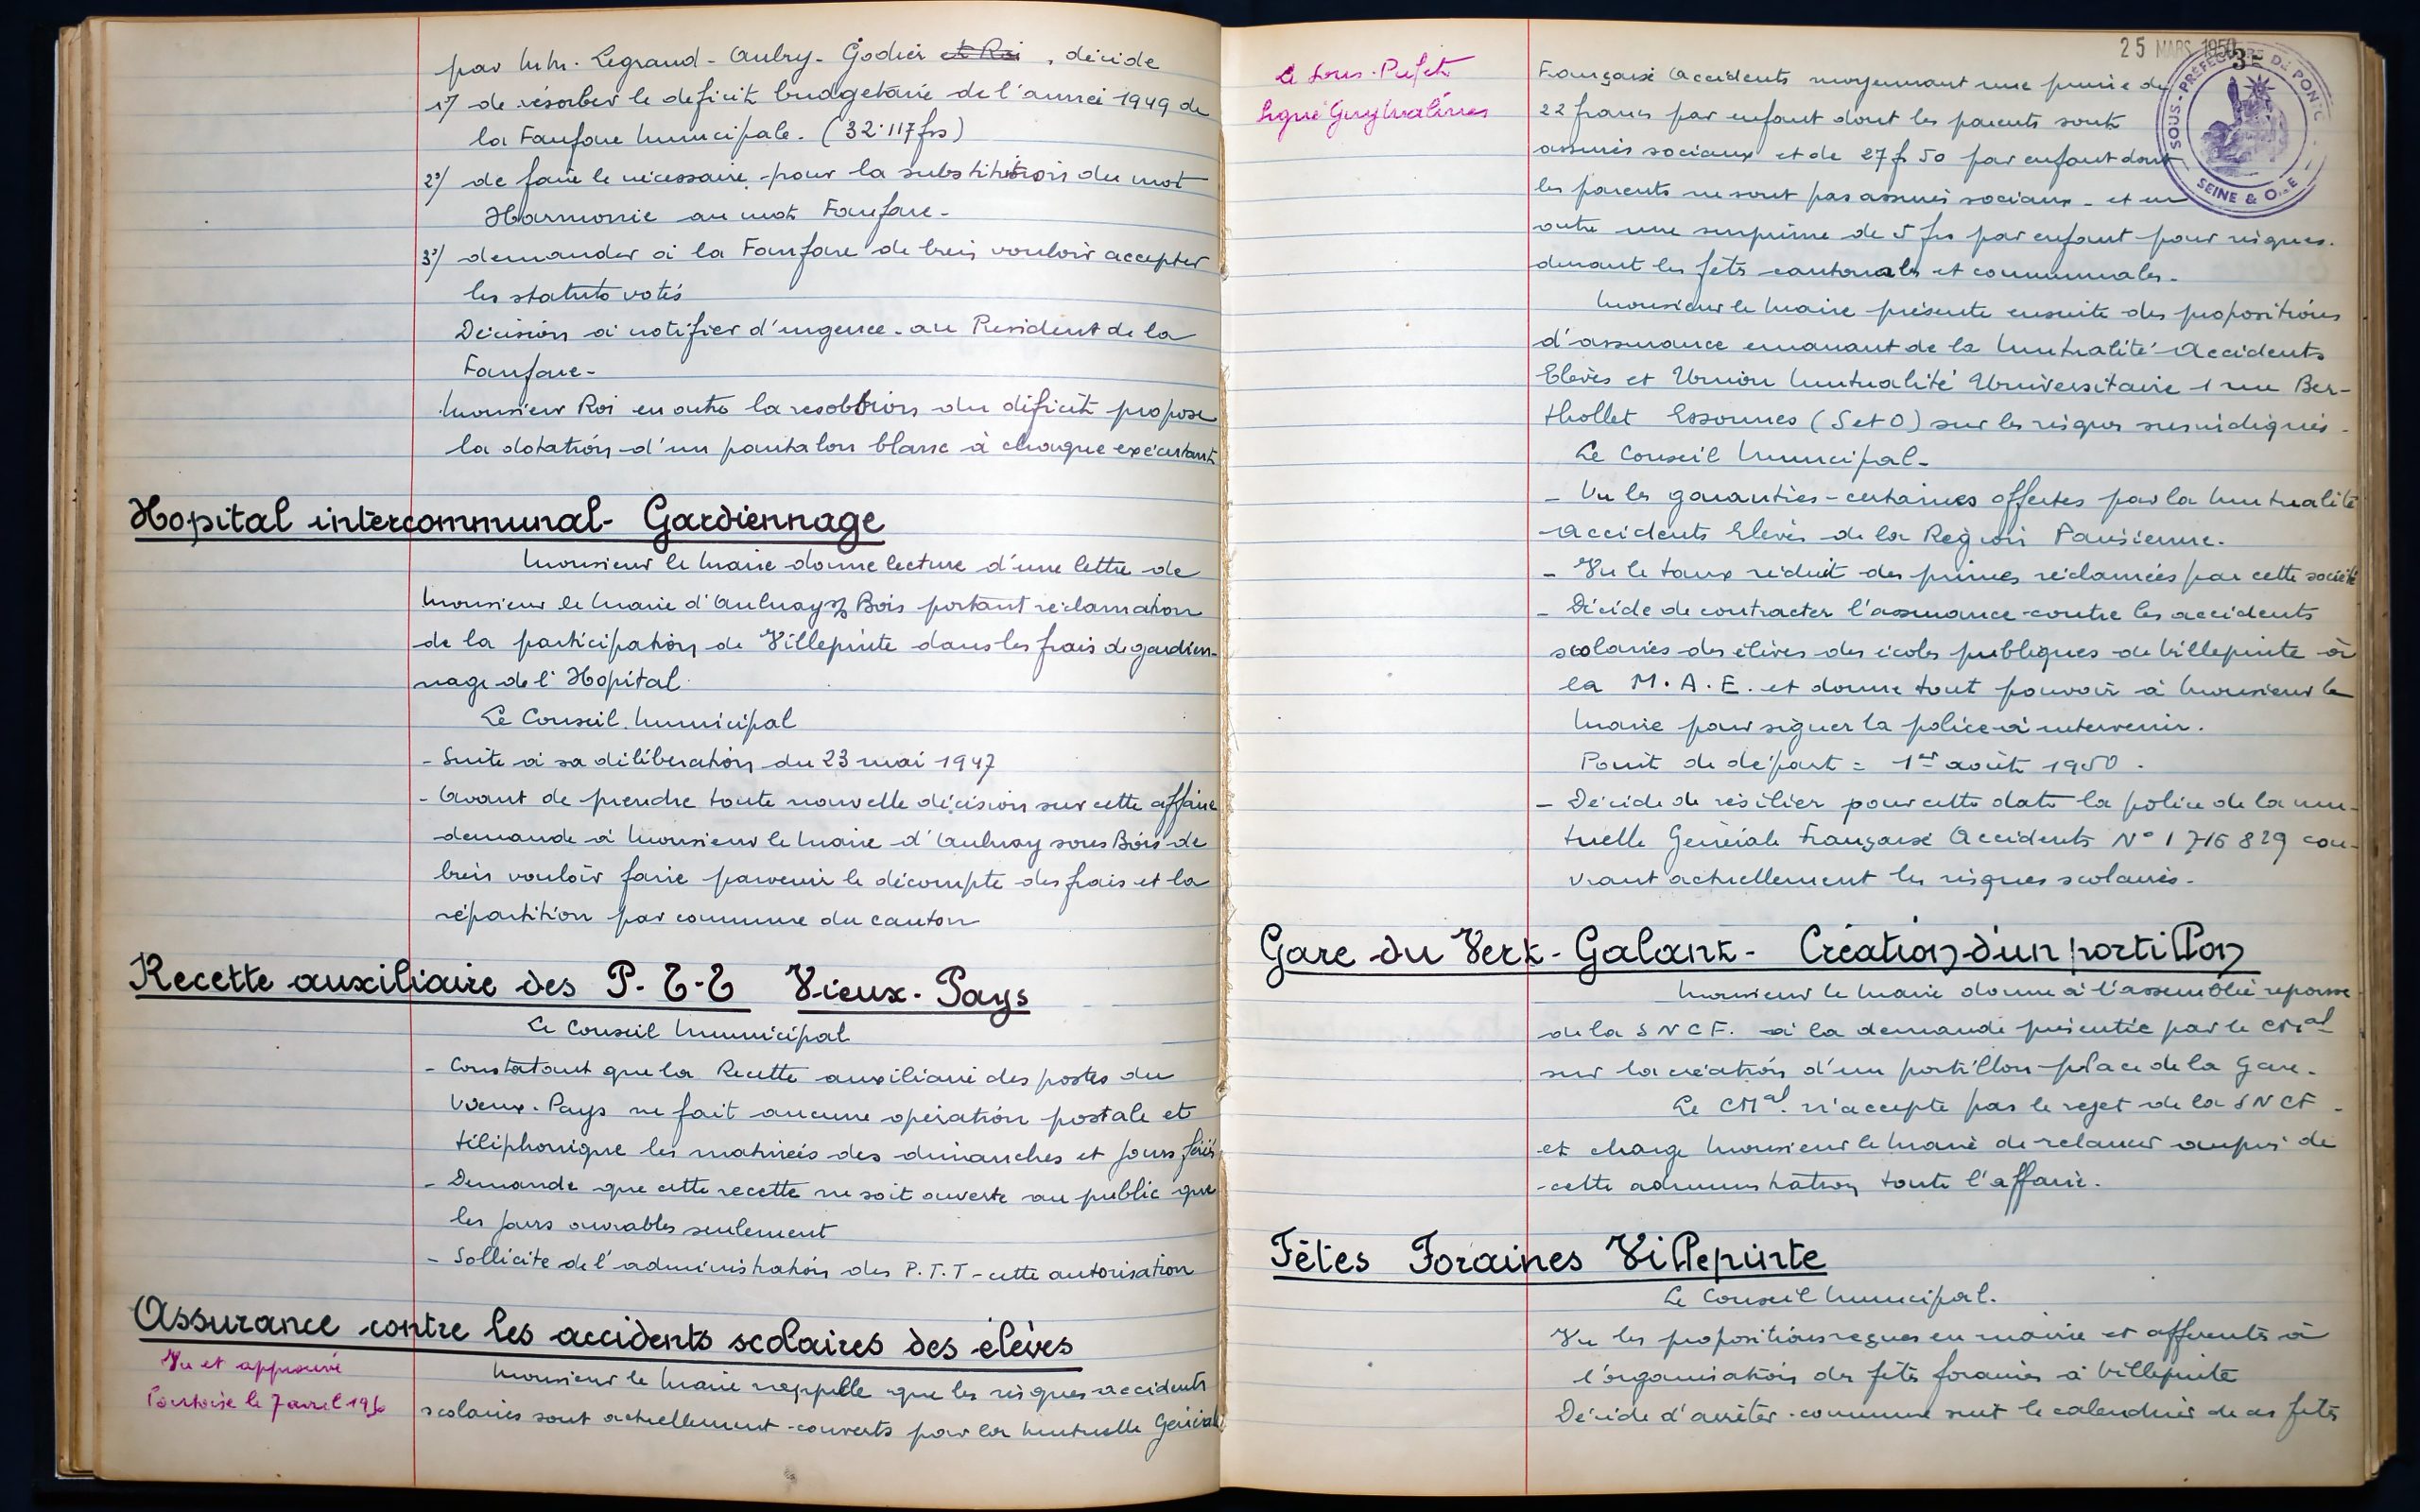 par MM. Legrand - Aubry - Godier et Roi, décide
1°/ de résorber le deficit budgetaire de l'année 1949 de
la Fanfare Municipale. (32.117 frs)
2°/ de faire le nécessaire pour la substitution du mot
Harmonie au mot Fanfare -
3°/ demander à la Fanfare de bien vouloir accepter
les statuts votés
Décision à notifier d'urgence au President de la
Fanfare -
Monsieur Roi en outre la du déficit propose
la dotation d'un pantalon blanc à chaque exécutant
Hopital intercommunal - Gardiennage
Monsieur le Maire donne lecture d'une lettre de
Monsieur le Maire d'Aulnay s/ Bois portant réclamation
de la participation de Villepinte dans les frais de gardien-
nage de l'Hopital.
Le Conseil Municipal
- Suite à sa délibération du 23 mai 1947
- Avant de prendre toute nouvelle décision sur cette affaire
demande à Monsieur le Maire d'Aulnay sous Bois de
bien vouloir faire parvenir le décompte des frais et la
répartition par commune du canton
Recette auxiliaire des P.T.T Vieux-Pays
Le Conseil Municipal
- Constatant que la Recette auxiliaire des postes du
Vieux-Pays ne fait aucune opération postale et
téléphonique les matinées des dimanches et jours fériés
- Demande que cette recette ne soit ouverte au public que
les jours ouvrables seulement
- Sollicite de l'administration des P.T.T - cette autorisation
Assurance contre les accidents scolaires des élèves
Vu et approuvé
Pontoise le 7 avril 1950
Monsieur le Maire rappelle que les risques accidents
scolaires sont actuellement couverts par la Mutuelle Générale
25 MARS 1950
3
SOUS-PRÉFECTURE DE PONTOISE
SEINE & OISE
Le Sous-Préfet
Signé Guy
Française Accidents moyennant une prime de
22 francs par enfant dont les parents sont
assurés sociaux et de 27 f 50 par enfant dont
les parents ne sont pas assurés sociaux - et en
outre une surprime de 5 frs par enfant pour risques
durant les fêtes cantonales et communales -
Monsieur le Maire présente ensuite des propositions
d'assurance émanant de la Mutualité Accidents
Elèves et Union Mutualité Universitaire 1 rue Ber-
thollet Essonnes (S et O) sur les risques susindiqués -
Le Conseil Municipal -
- Vu les garanties certaines offertes par la Mutualité
Accidents Elèves de la Région Parisienne.
- Vu le taux réduit des primes réclamées par cette société
- Décide de contracter l'assurance contre les accidents
scolaires des élèves des écoles publiques de Villepinte à
la M.A.E. et donne tout pouvoir à Monsieur le
Maire pour signer la police à intervenir.
Point de départ = 1er août 1950.
- Décide de résilier pour cette date la police de la mu-
tuelle Générale Française Accidents N° 1 716 829 cou-
vrant actuellement les risques scolaires -
Gare du Vert-Galant - Création d'un portillon
Monsieur le Maire donne à l'assemblée reponse
de la SNCF. à la demande présentée par le CMal
sur la création d'un portillon place de la Gare.
Le CMal. n'accepte pas le rejet de la SNCF -
et charge Monsieur le Maire de relancer auprès de
cette administration toute l'affaire.
Fêtes Foraines Villepinte
Le Conseil Municipal.
Vu les propositions reçues en mairie et afferents à
l'organisation des fêtes foraines à Villepinte
Décide d'arrêter comme suit le calendrier de ces fêtes